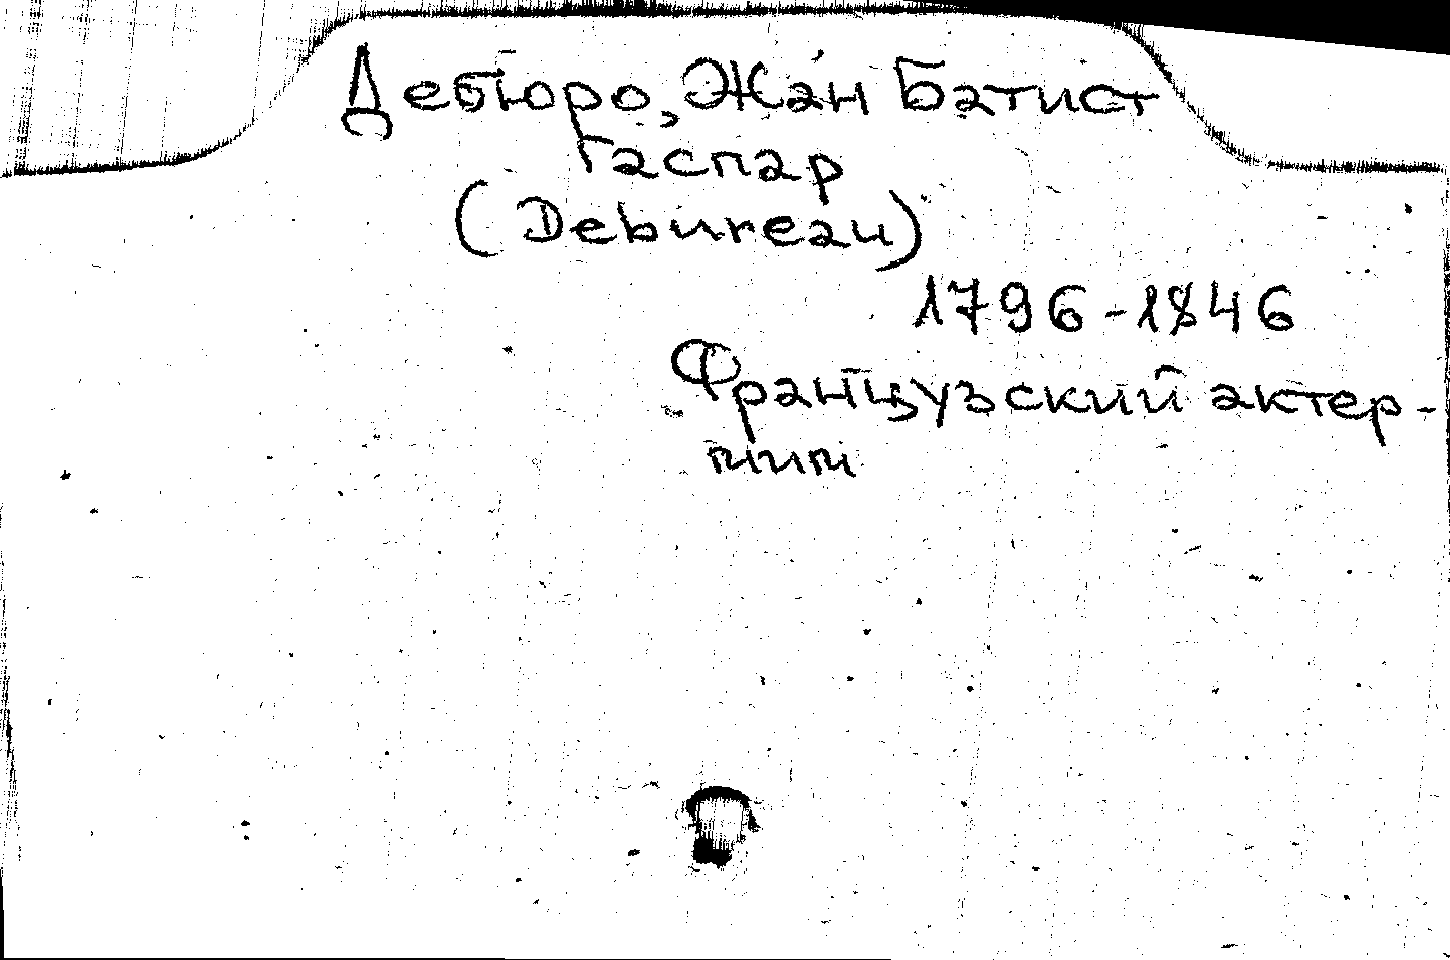 Дебюро, Жан Батист
Гаспар
(Debureau)
1796-1846
Французский актер-
мим